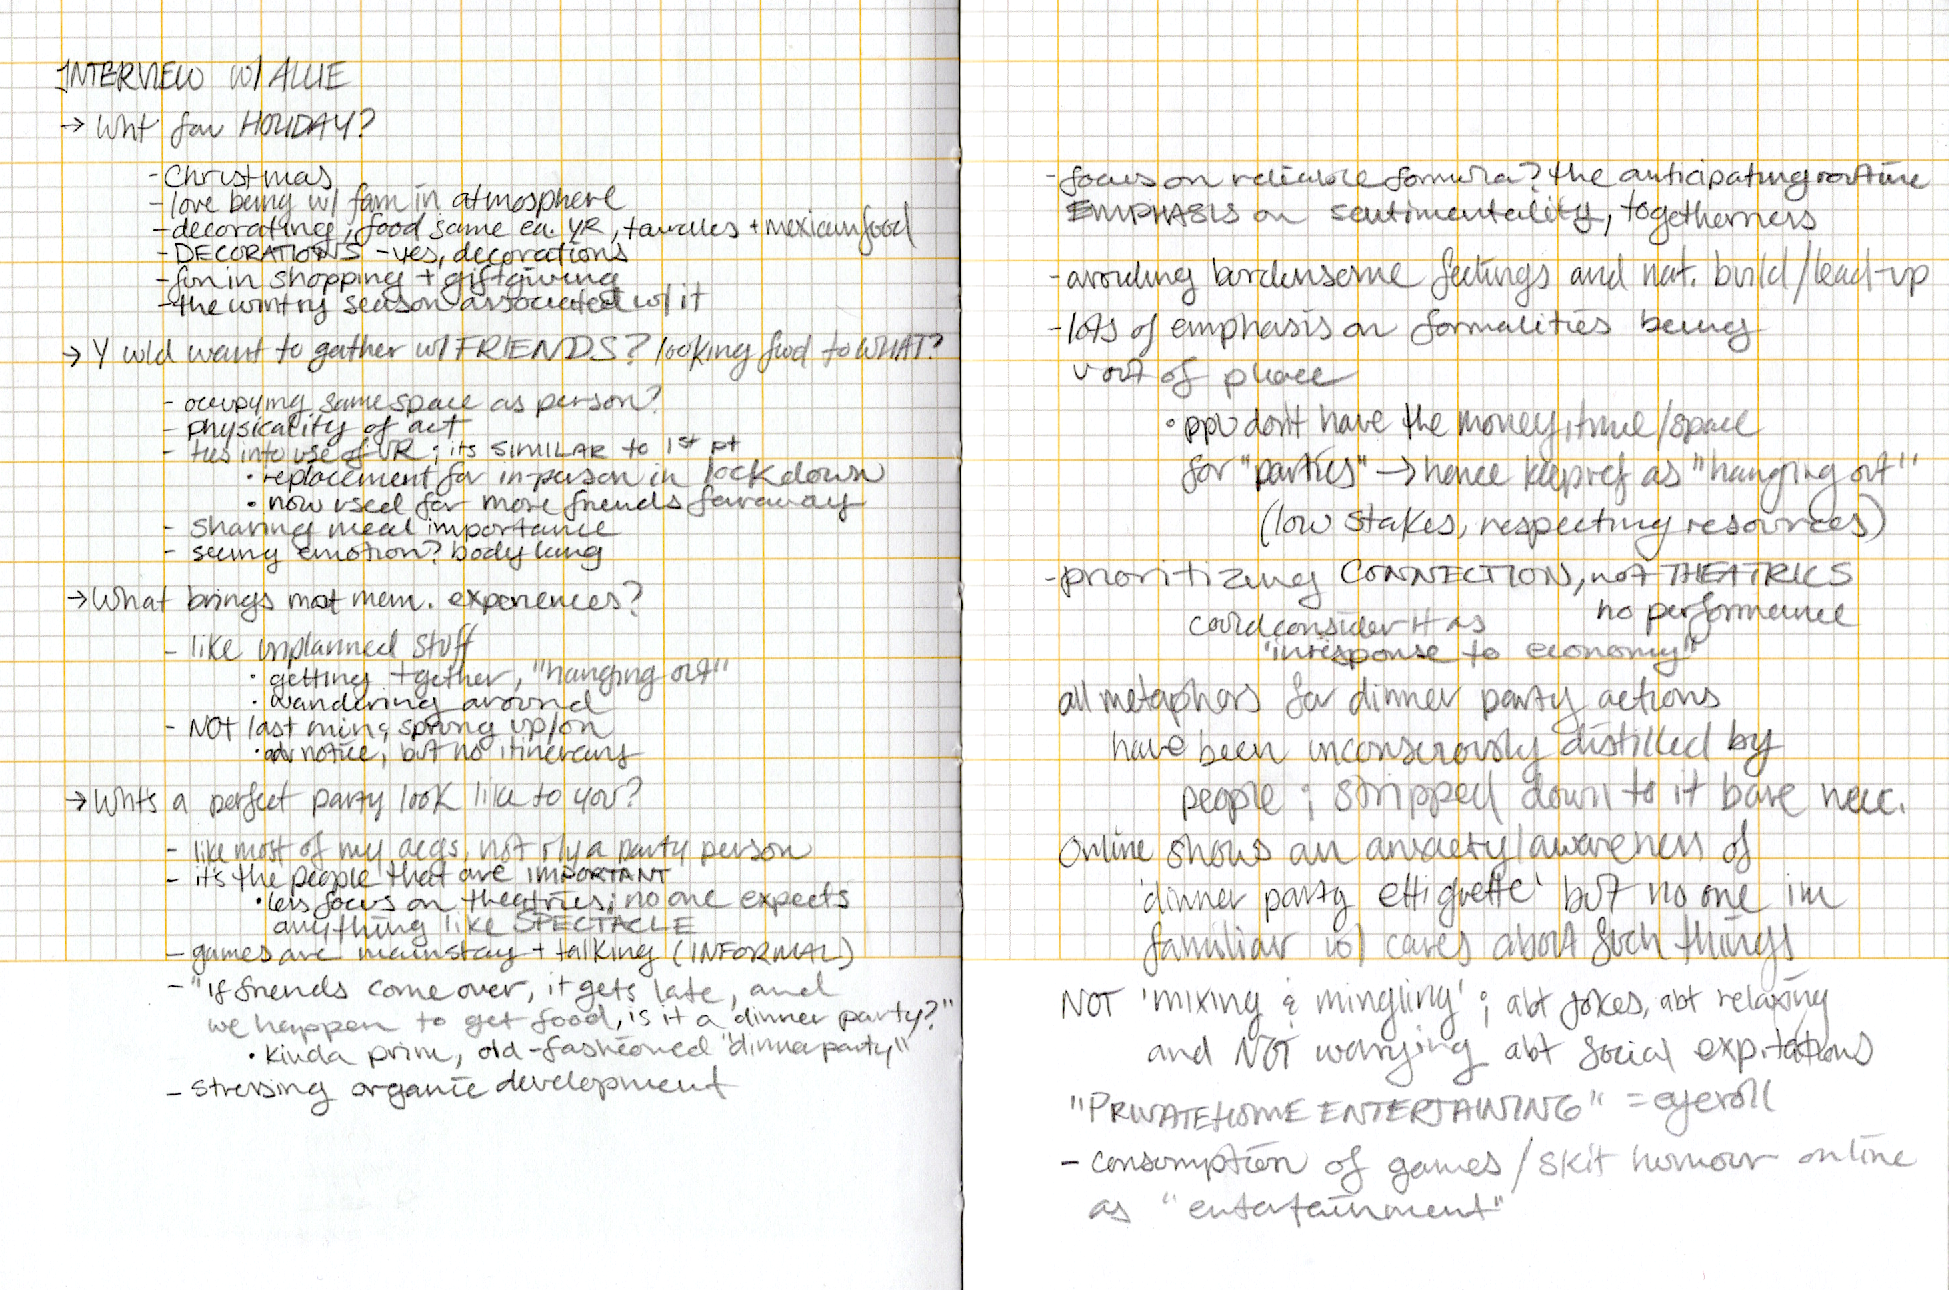 INTERVIEW w/ ALLIE
→ Wht fav HOLIDAY?
- Christmas
- love being w/ fam in atmosphere
- decorating; food same ea. YR, tamales + mexican food
- DECORATIONS - yes, decorations
- fun in shopping + giftgiving
- the wintry season associated w/ it
→ Y wld want to gather w/ FRIENDS? looking fwd to WHAT?
- occupying same space as person?
- physicality of act
- ties into use of VR; its SIMILAR to 1st pt
• replacement for in-person in lockdown
• now used for more friends faraway
- sharing meal importance
- seeing emotion? body lang
→ What brings most mem. experiences?
- like unplanned stuff
• getting together, "hanging out"
• wandering around
- NOT last min; sprung up/on
• adv notice, but no itinerary
→ Whts a perfect party look like to you?
- like most of my aegs, not rly a party person
- it's the people that are IMPORTANT
• less focus on theatrics; no one expects
anything like SPECTACLE
- games are mainstay + talking (INFORMAL)
- "if friends come over, it gets late, and
we happen to get food, is it a dinner party?"
• kinda prim, old-fashioned "dinnerparty"
- stressing organic development
- focus on reliable formula? the anticipating routine
EMPHASIS on sentimentality, togetherness
- avoiding burdensome feelings and nat. build/lead-up
- lots of emphasis on formalities being
out of place
• ppl don't have the money, time/space
for "parties" → hence keep ref as "hanging out"
(low stakes, respecting resources)
- prioritizing CONNECTION, not THEATRICS
no performance
could consider it as
"in response to economy"
all metaphors for dinner party actions
have been unconsciously distilled by
people; stripped down to it bare necc.
Online shows an anxiety/awareness of
'dinner party ettiquette' but no one im
familiar w/ cares about such things
NOT 'mixing & mingling'; abt jokes, abt relaxing
and NOT worrying abt social expitations
"PRIVATE HOME ENTERTAINING" = eyeroll
- consumption of games/skit humour online
as "entertainment"